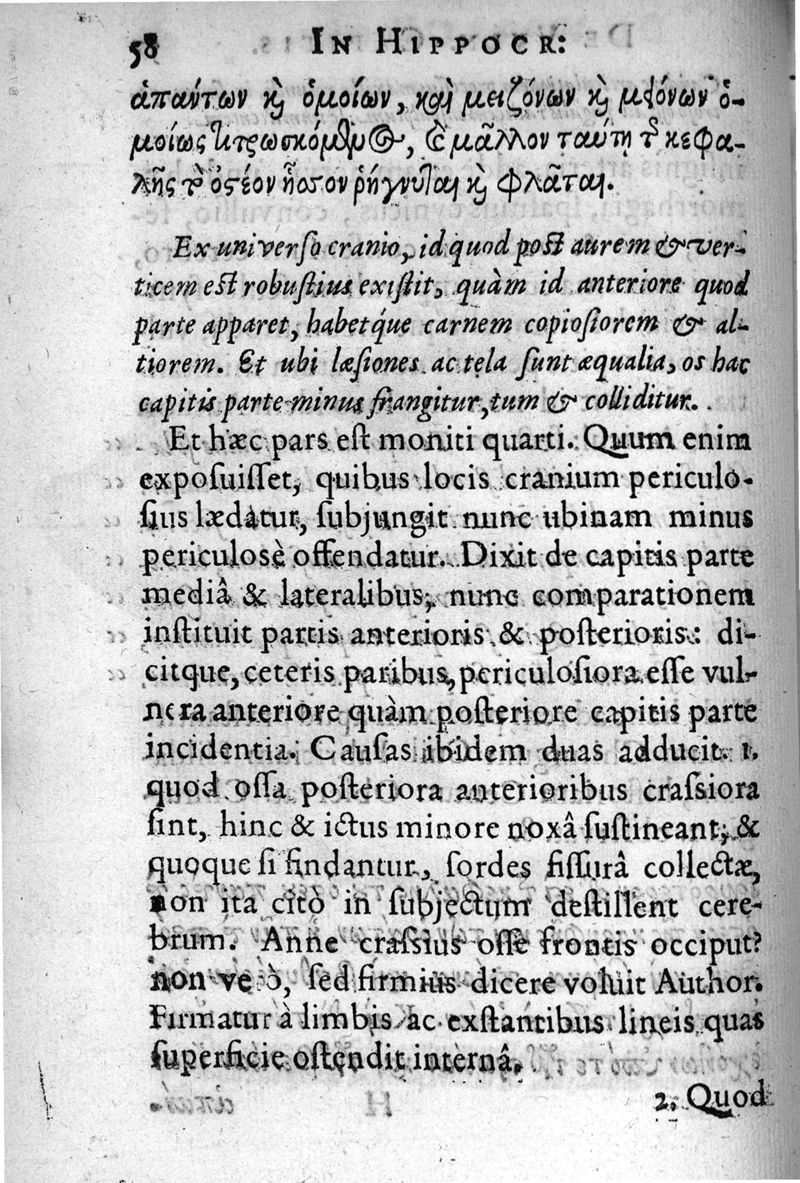 58 IN HIPPOCR:
ἁπαύτων κ̀ ὁμοίων, καὶ μειζόνων κ̀ μειόνων ὁ-
μοίως τιτρωσκόμεν, μᾶλλον ταύτῃ κεφα-
λῆς ὀστέον ἧσσον ῥήγνυται κ̀ φλᾶται.
Ex universo cranio, id quod post aurem & ver-
ticem est robustius existit, quàm id anteriore quod
parte apparet, habetq́ue carnem copiosiorem & al-
tiorem. Et ubi læsiones ac tela sunt æqualia, os hac
capitis parte minus frangitur, tum & colliditur.
Et hæc pars est moniti quarti. Quum enim
exposuisset, quibus locis cranium periculo-
sius lædatur, subjungit nunc ubinam minus
periculosè offendatur. Dixit de capitis parte
mediâ & lateralibus; nunc comparationem
instituit partis anterioris & posterioris: di-
citque, ceteris paribus, periculosiora esse vul-
nera anteriore quàm posteriore capitis parte
incidentia. Causas ibidem duas adducit. 1.
quod ossa posteriora anterioribus crassiora
sint, hinc & ictus minore noxâ sustineant; &
quoque si findantur, sordes fissurâ collectæ,
non ita citò in subjectum destillent cere-
brum. Anne crassius osse frontis occiput?
non ve ò, sed firmius dicere voluit Author.
Firmatur à limbis ac exstantibus lineis quas
superficie ostendit internâ.
2. Quod